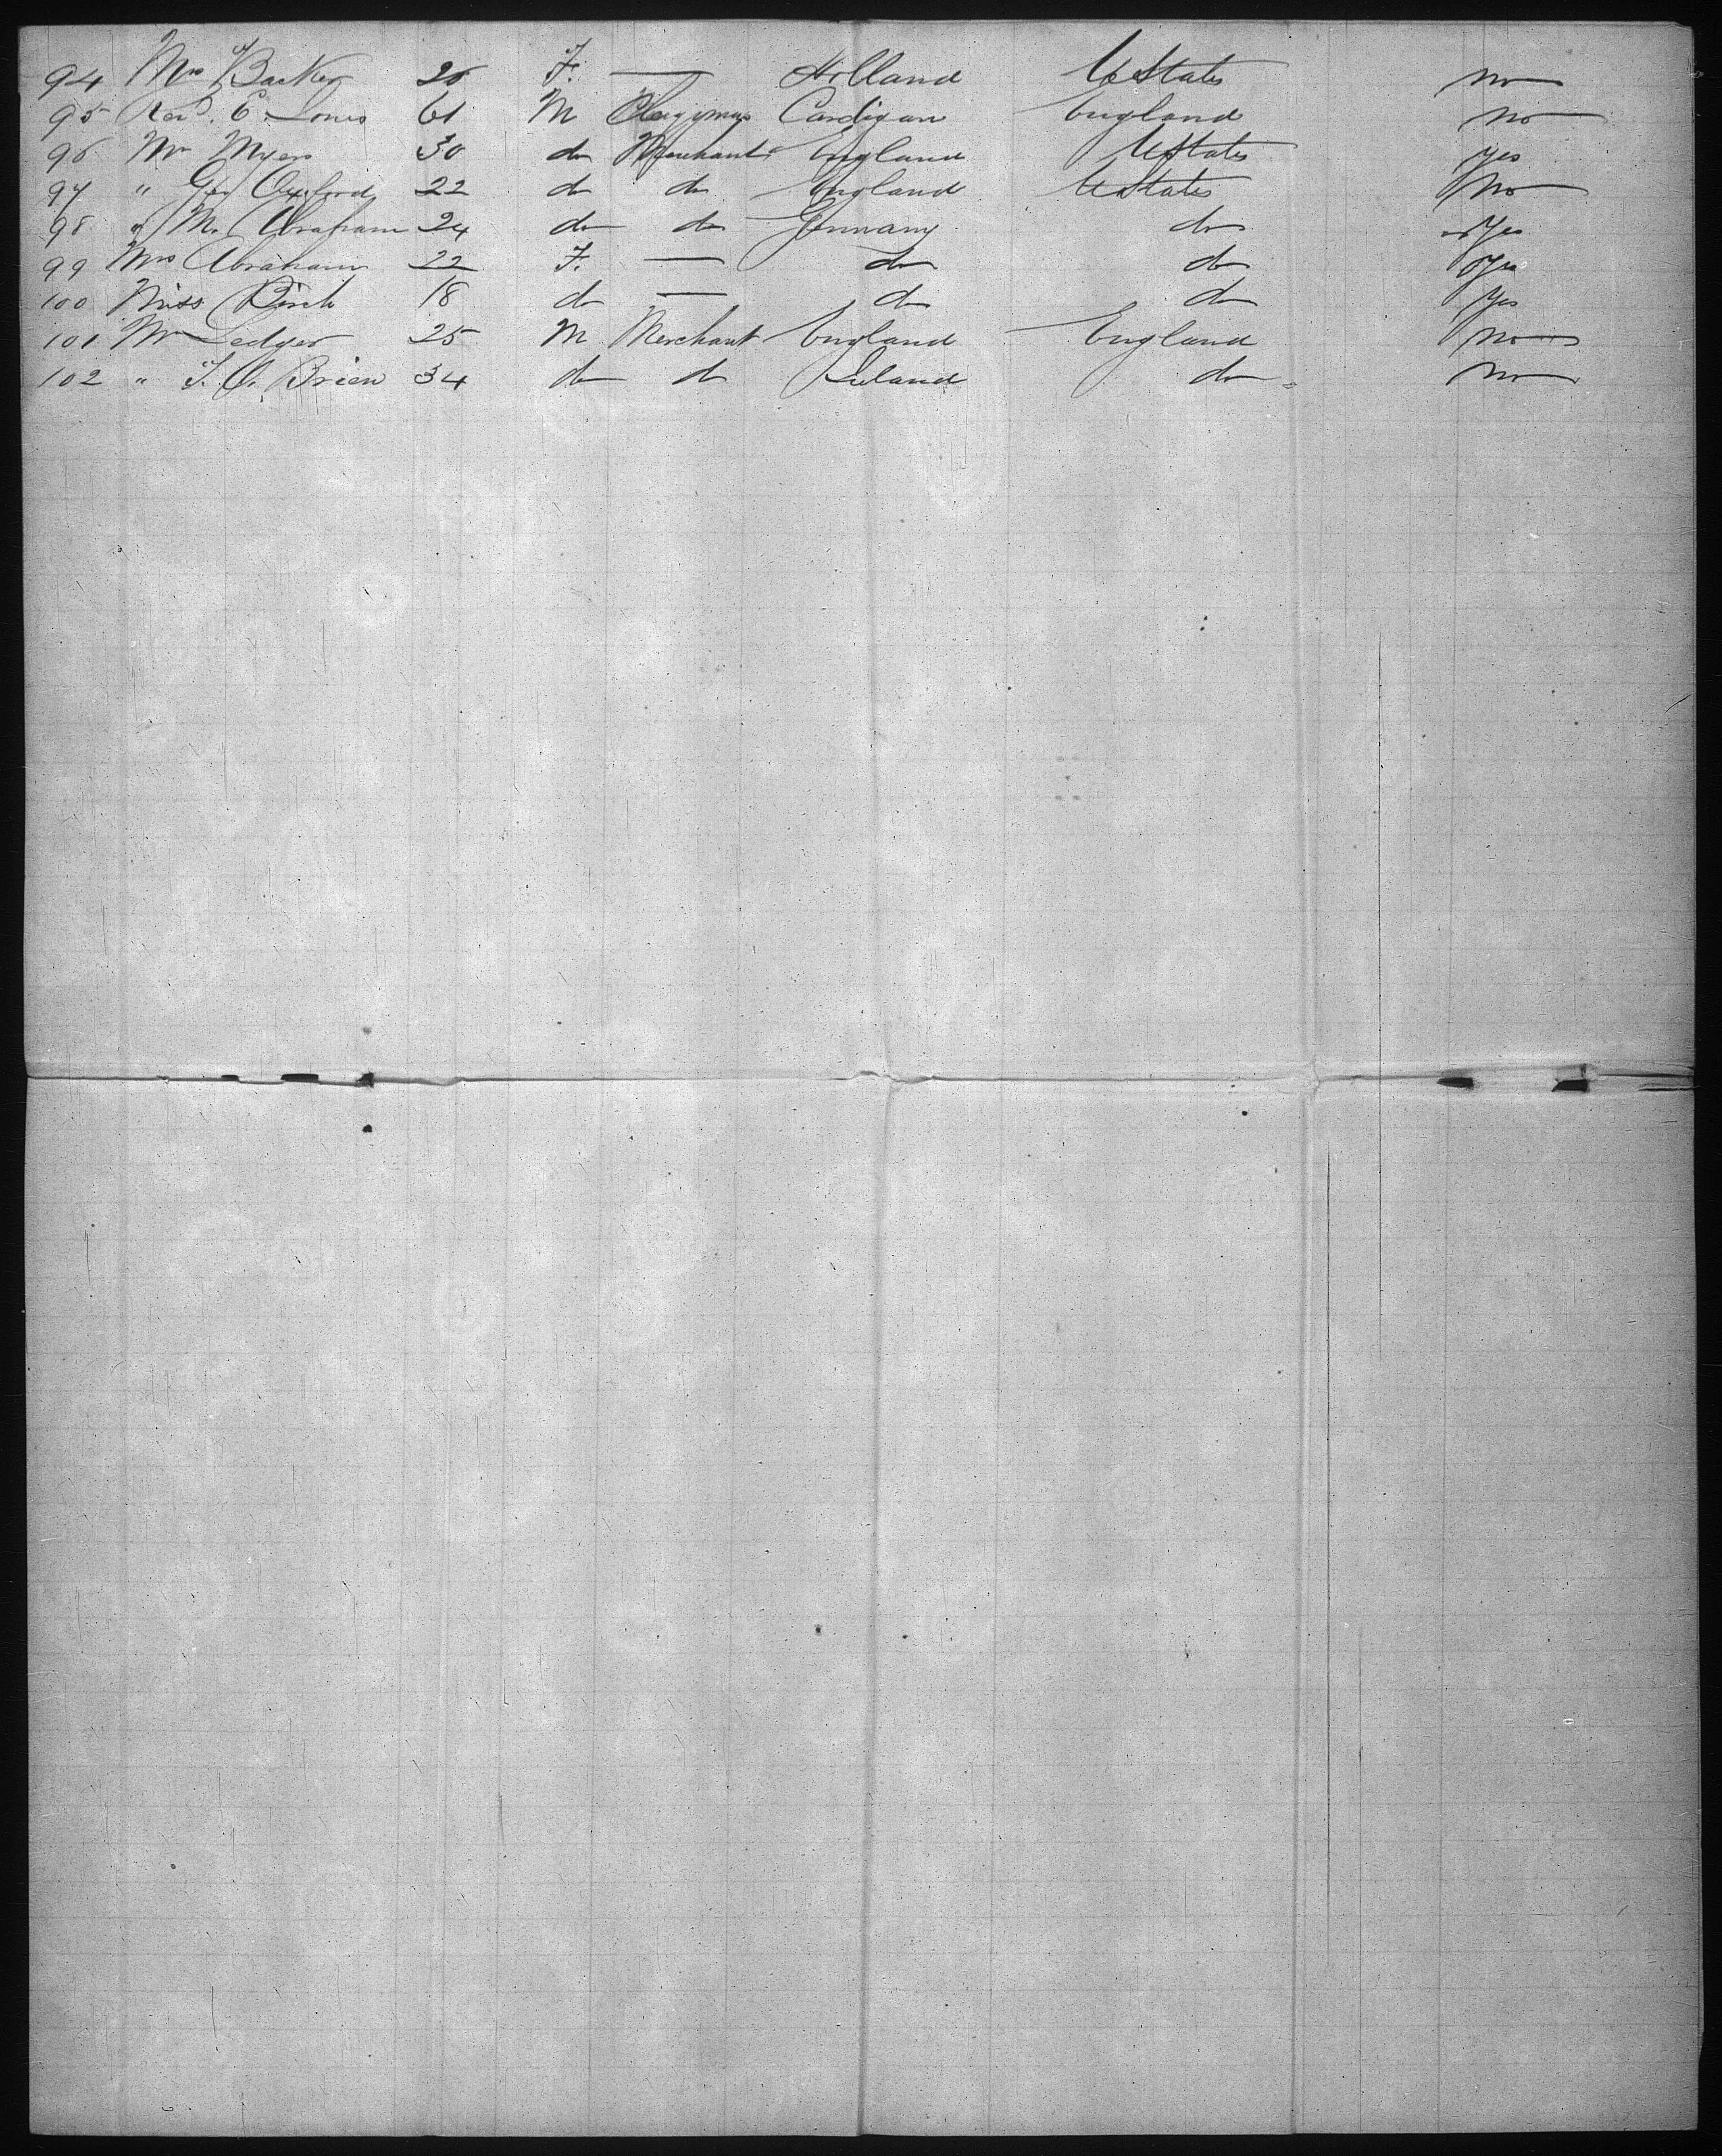 94 Mrs Barker 26 F. — Holland U States no
95 Revd. E. Jones 61 M Clergyman Cardigan England no
96 Mr Myers 30 do Merchant England UStates yes
97 " Geo Oxford 22 do do England UStates no
98 " M. Abraham 24 do do Germany do yes
99 Mrs Abraham 22 F. — do do yes
100 Miss Birch 18 do — do do yes
101 Mr Ledger 25 M Merchant England England no
102 " J. O. Brien 34 do do Ireland do no